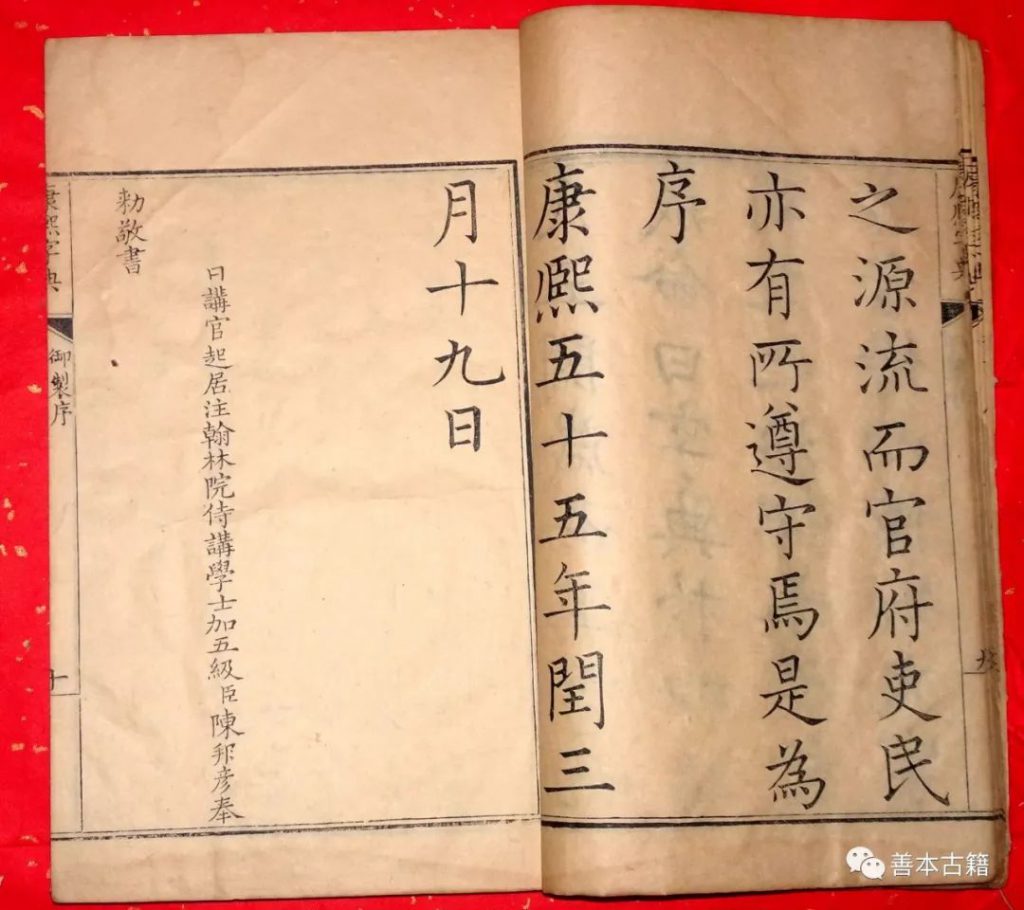 之源流而官府吏民
亦有所遵守焉是為
序
康熙五十五年閏三
月十九日
日講官起居注翰林院侍講學士加五級臣陳邦彥奉
勅敬書
康熙字典
御製序
十
善本古籍